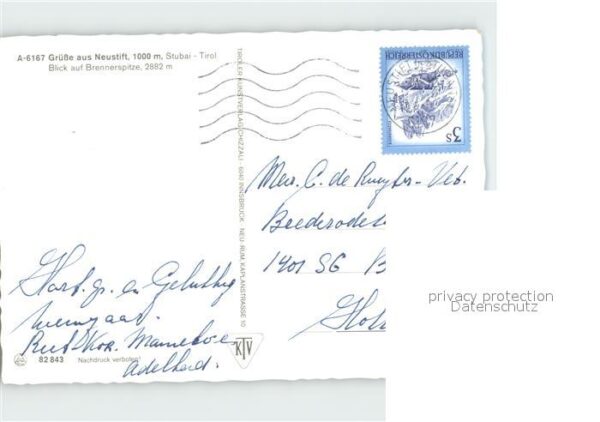 A-6167 Grüße aus Neustift, 1000 m, Stubai - Tirol
Blick auf Brennerspitze, 2882 m
TIROLER KUNSTVERLAG CHIZZALI · 6040 INNSBRUCK NEU-RUM, KAPLANSTRASSE 10
REPUBLIK ÖSTERREICH
3 S
Mevr. C. de Ruyter-
Brederode
1401 SG B
Hol
Hart. gr. en Gelukkig
Ruth Kor.
Adelheid.
82 843 Nachdruck verboten!
KTV
privacy protection
Datenschutz